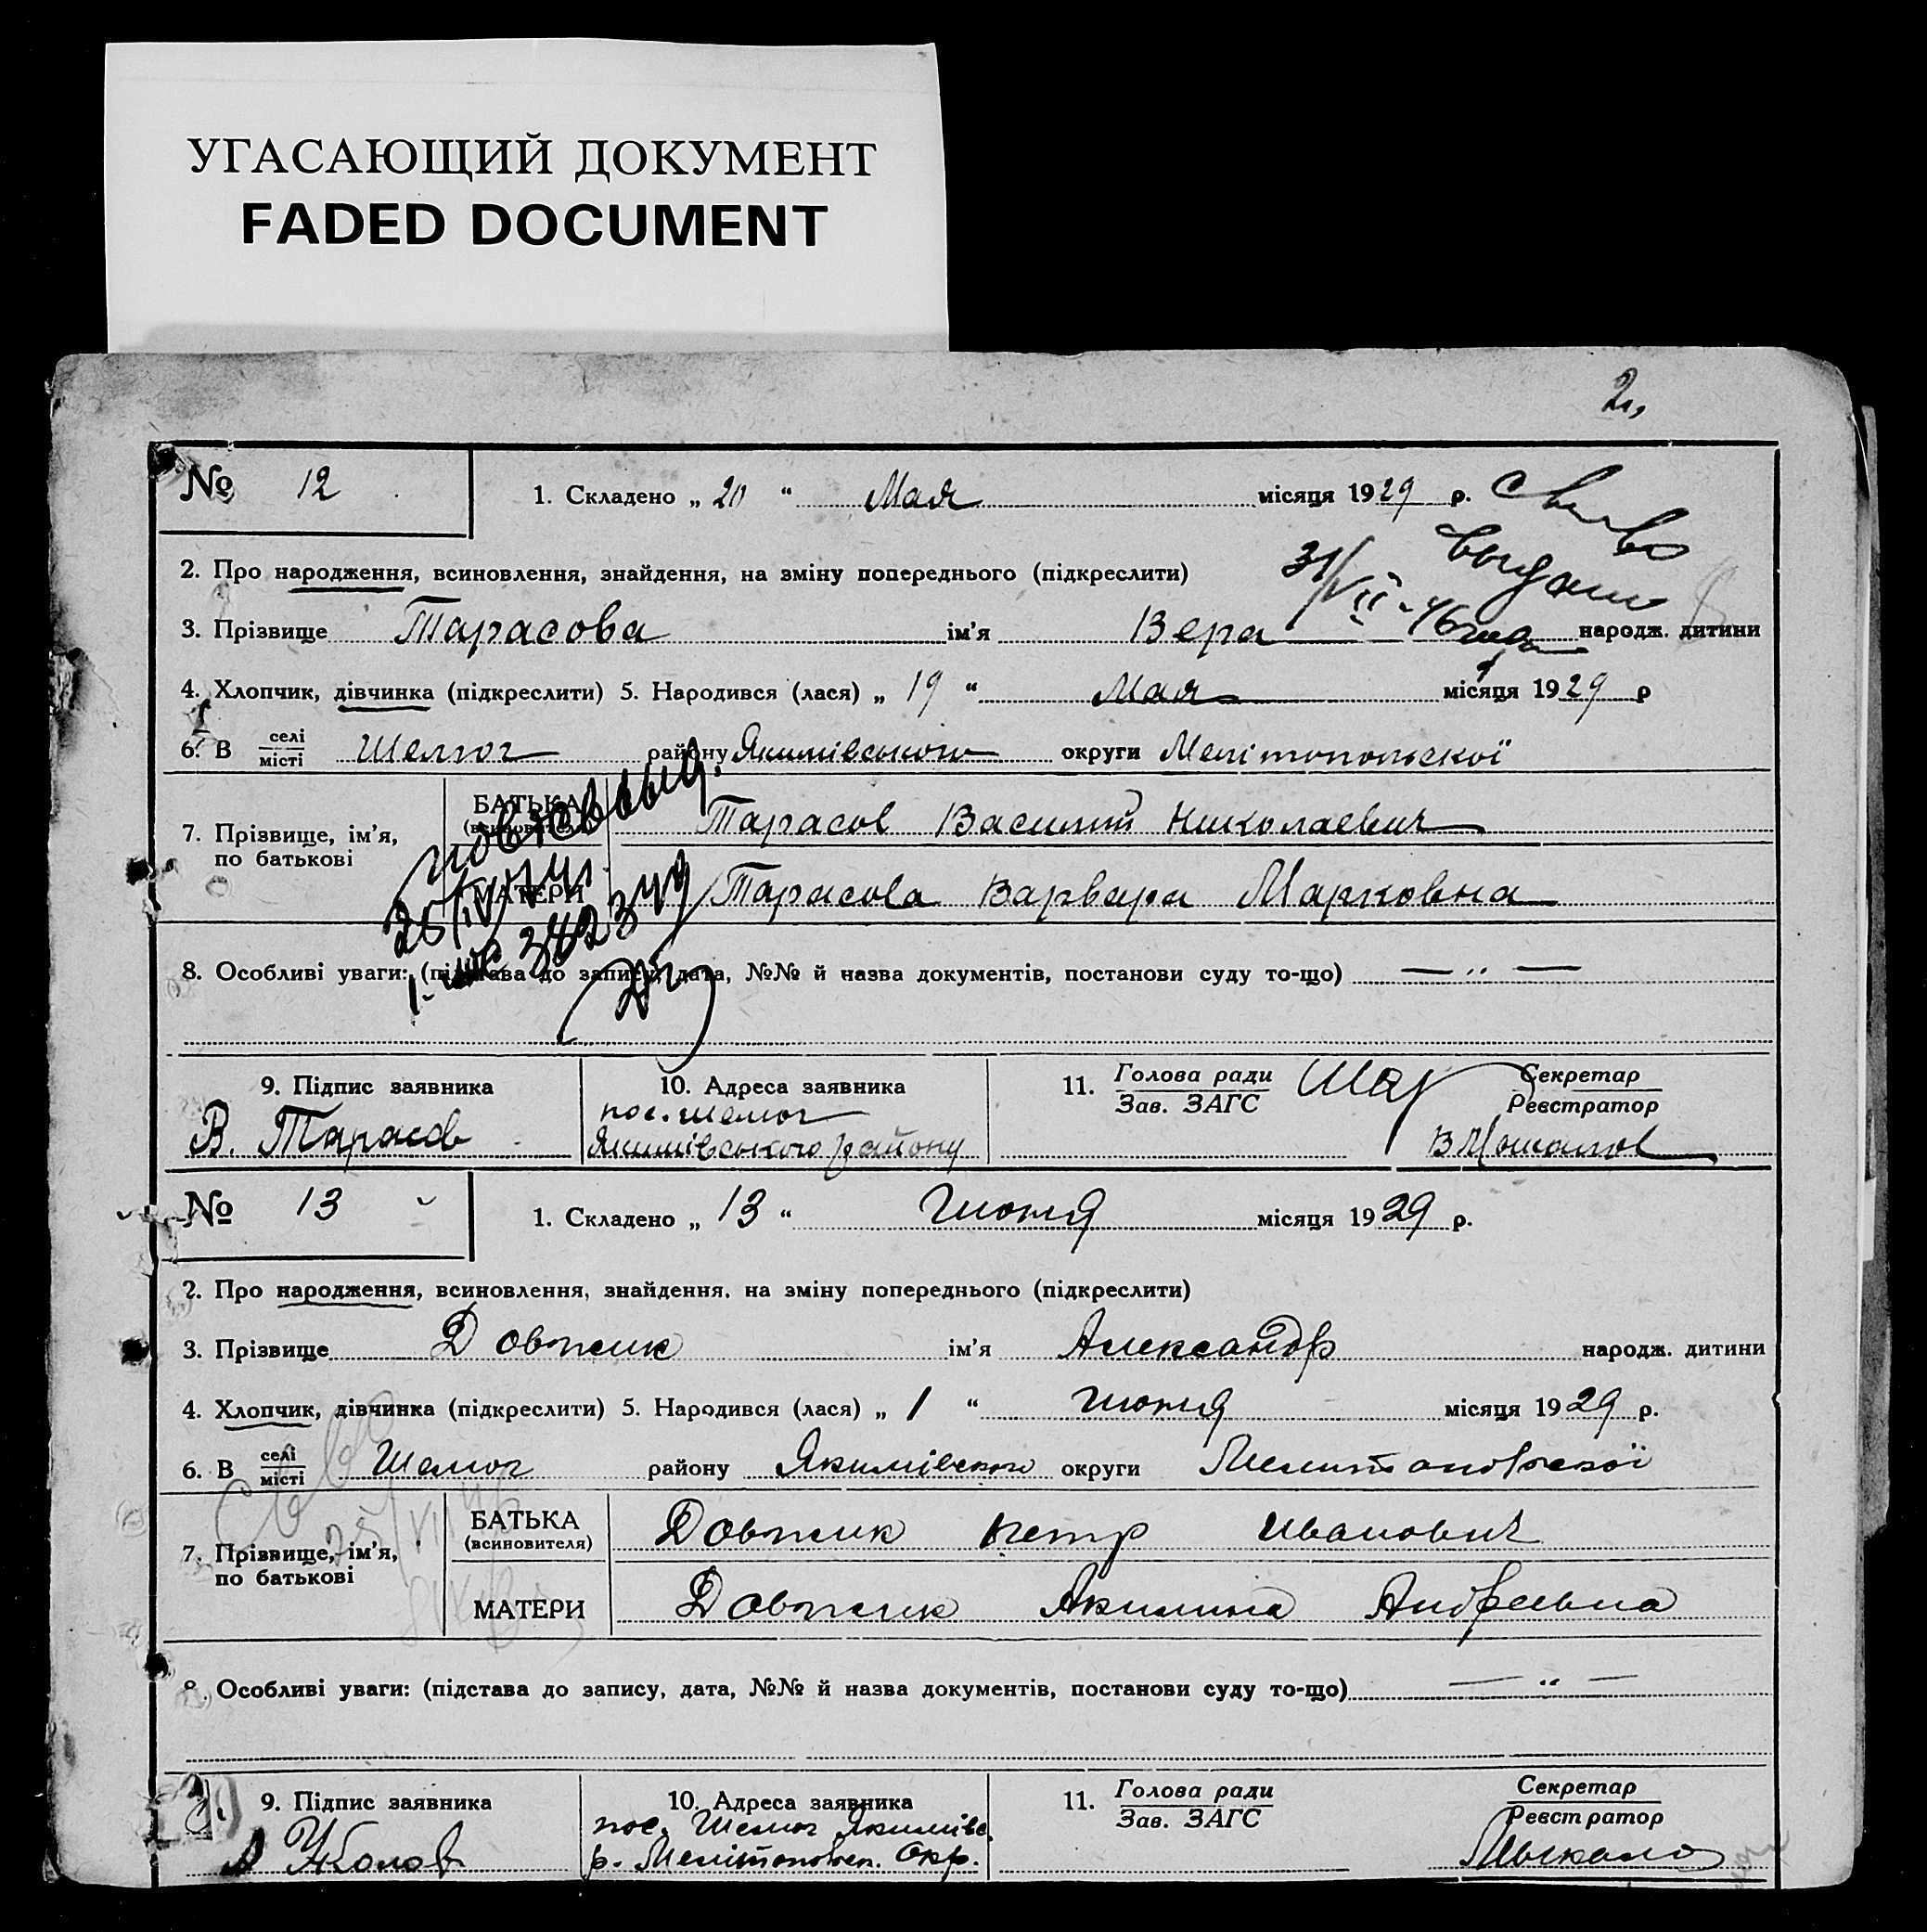 УГАСАЮЩИЙ ДОКУМЕНТ
FADED DOCUMENT
2.
№ 12
1. Складено „ 20 “ Мая місяця 1929 р.
выдан
31/VII-46
2. Про народження, всиновлення, знайдення, на зміну попереднього (підкреслити)
3. Прізвище Тарасова ім'я Вера народж. дитини
4. Хлопчик, дівчинка (підкреслити) 5. Народився (лася) „ 19 “ Мая місяця 1929 р
6. В селі місті Шелюг району Якимівського округи Мелітопольскої
7. Прізвище, ім'я, по батькові
БАТЬКА (всиновителя) Тарасов Василий Николаевич
МАТЕРИ Тарасова Варвара Марковна
8. Особливі уваги: (підстава до запису, дата, №№ й назва документів, постанови суду то-що) — „ —
9. Підпис заявника
В. Тарасов
10. Адреса заявника
пос. Шелюг
Якимівського району
11. Голова ради
Зав. ЗАГС
Секретар
Реєстратор
№ 13
1. Складено „ 13 “ Июня місяця 1929 р.
2. Про народження, всиновлення, знайдення, на зміну попереднього (підкреслити)
3. Прізвище Довжик ім'я Александр народж. дитини
4. Хлопчик, дівчинка (підкреслити) 5. Народився (лася) „ 1 “ Июня місяця 1929 р.
6. В селі місті Шелюг району Якимівского округи
7. Прізвище, ім'я, по батькові
БАТЬКА (всиновителя) Довжик Петр Иванович
МАТЕРИ Довжик Акилина Андреевна
8. Особливі уваги: (підстава до запису, дата, №№ й назва документів, постанови суду то-що) — „ —
9. Підпис заявника
10. Адреса заявника
пос. Шелюг Якимівс.
р. Окр.
11. Голова ради
Зав. ЗАГС
Секретар
Реєстратор